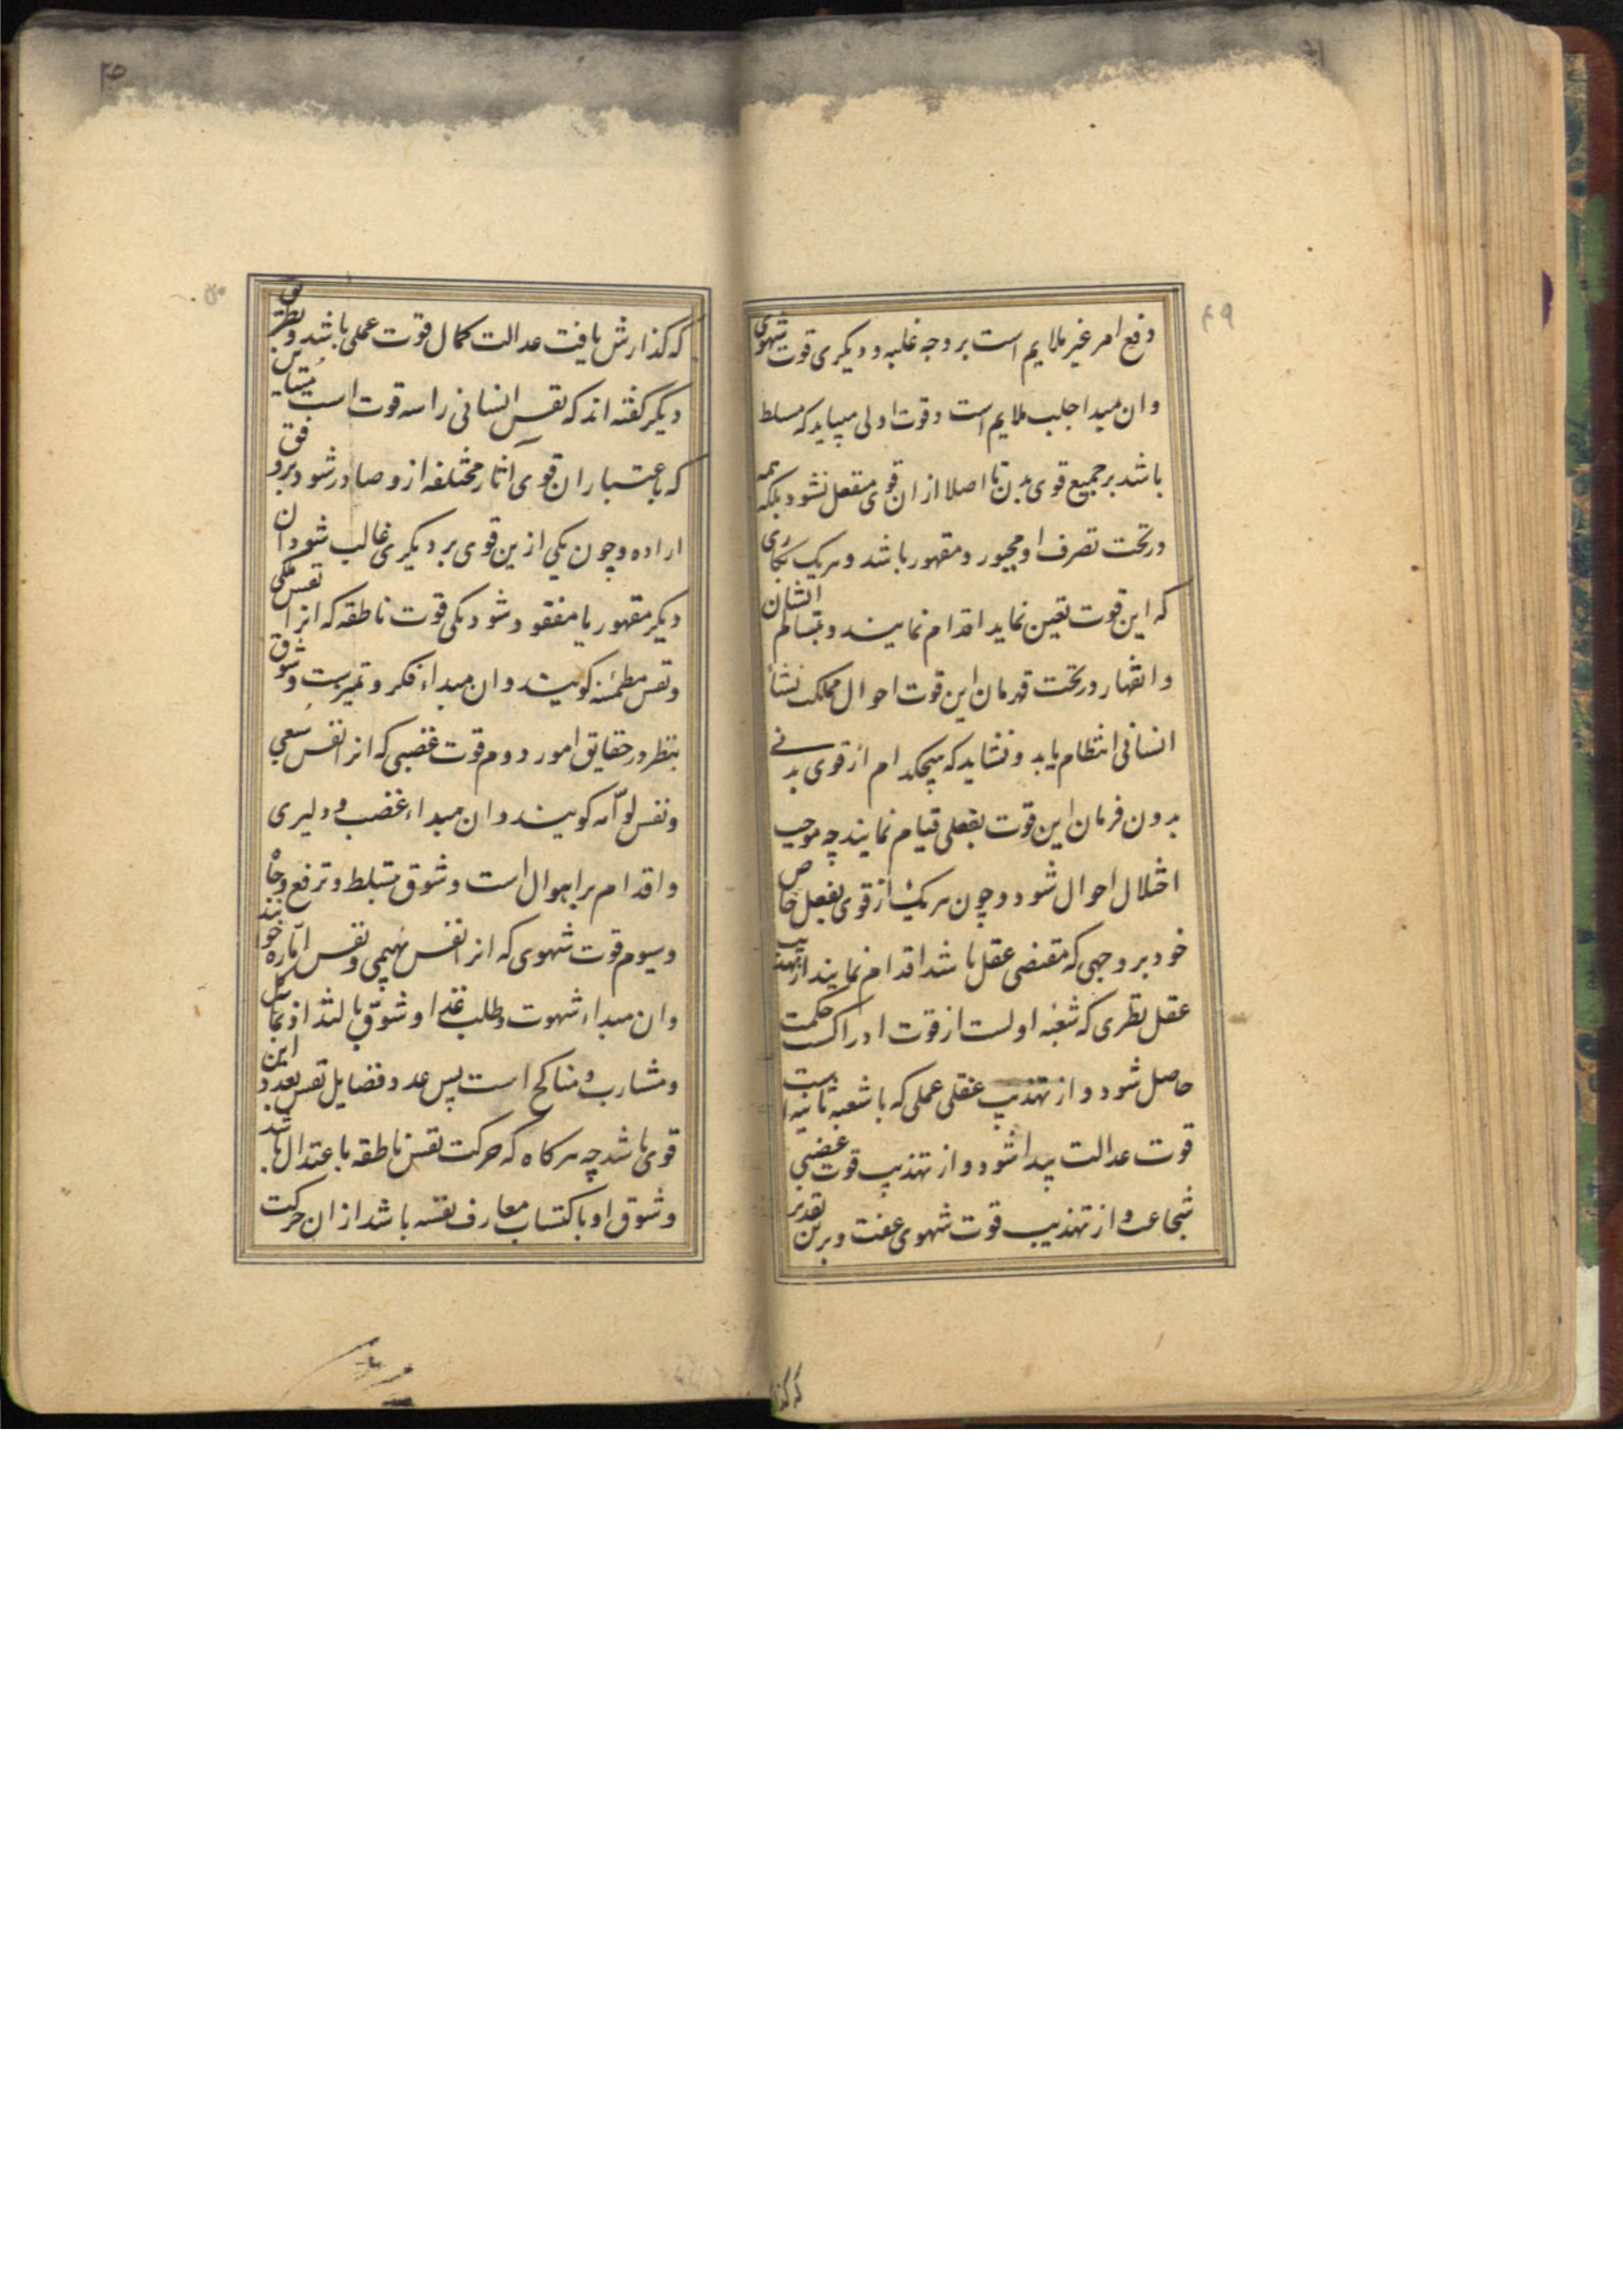 ۴۹
دفع امر غیر ملایم است بر وجه غلبه و دیکری قوت شهوی
و ان مبدا جلب ملایم است و قوت اولی میباید که مسلط
باشد بر جمیع قوی بدن تا اصلا از ان قوی منفعل نشود بلکه همه
در تحت تصرف او مجبور و مقهور باشد و هر یک بکاری
که این قوت تعین نماید اقدام نمایند و بتسالم ایشان
و انقهار در تحت قهرمان این قوت احوال مملکت نشأ
انسانی انتظام یابد و نشاید که هیچکدام از قوی بدنی
بدون فرمان این قوت بفعلی قیام نمایند چه موجب
اختلال احوال شود و چون هر یک از قوی بفعل خاص
خود بر وجهی که مقتضی عقل باشد اقدام نمایند از تهذیب
عقل نظری که شعبه اولست از قوت ادراک حکمت
حاصل شود و از تهذیب عقلی عملی که با شعبه ثانیه است
قوت عدالت پیدا شود و از تهذیب قوت غضبی
شجاعت و از تهذیب قوت شهوی عفت و برین تقدیر
که کذا
۵۰
که کذارش یافت عدالت کمال قوت عملی باشد و بطریق
دیکر کفته اند که نفس انسانی را سه قوت است متباین
که باعتبار ان قوی آثار مختلفه ازو صادر شود بر وفق
اراده و چون یکی ازین قوی بر دیکری غالب شود ان
دیکر مقهور یا مفقود شود یکی قوت ناطقه که انرا نفس ملکی
و نفس مطمئنه کویند و ان مبداء فکر و تمیزست و شوق
بنظر در حقایق امور دوم قوت غضبی که انرا نفس سبعی
و نفس لوّامه کویند و ان مبداء غضب و دلیری
و اقدام بر اهوال است و شوق تسلط و ترفع و جاه
و سیوم قوت شهوی که انرا نفس بهیمی و نفس امّاره خوانند
و ان مبداء شهوت و طلب غدا و شوق بالتذاذ بمآکل
و مشارب و مناکح است پس عدد فضایل نفس بعدد این
قوی باشد چه هر کاه که حرکت نفس ناطقه باعتدال باشد
و شوق او باکتساب معارف نفسه باشد از ان حرکت